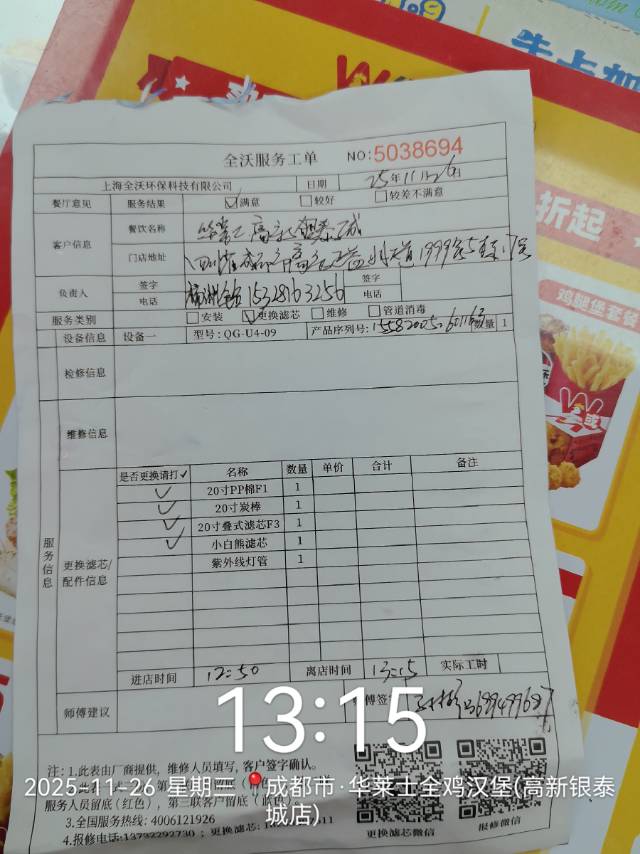 牛卡加
折起
鸡腿堡套餐
全沃服务工单 NO:5038694
上海全沃环保科技有限公司 日期 25年11月26日
餐厅意见 服务结果 ☑满意 □较好 □较差不满意
客户信息 餐饮名称 华莱士高新银泰城
门店地址 四川省成都市高新区益州大道1999号5栋
负责人 签字 签字
电话 15328163256 电话
服务类别 □安装 ☑更换滤芯 □维修 □管道消毒
设备信息 设备一 型号:QG-U4-09 产品序列号: 数量 1
检修信息
维修信息
服务信息
更换滤芯/配件信息
是否更换请打✓ 名称 数量 单价 合计 备注
✓ 20寸PP棉F1 1
✓ 20寸炭棒 1
✓ 20寸叠式滤芯F3 1
✓ 小白熊滤芯 1
紫外线灯管 1
进店时间 12:50 离店时间 13:15 实际工时
师傅建议 师傅签
13:15
注:1.此表由厂商提供，维修人员填写，客户签字确认。
2025-11-26 星期三 成都市·华莱士全鸡汉堡(高新银泰城店)
服务人员留底(红色)，第三联客户留底
3.全国服务热线:4006121926
4.报修电话:13732292730；更换滤芯:
更换滤芯微信 报修微信